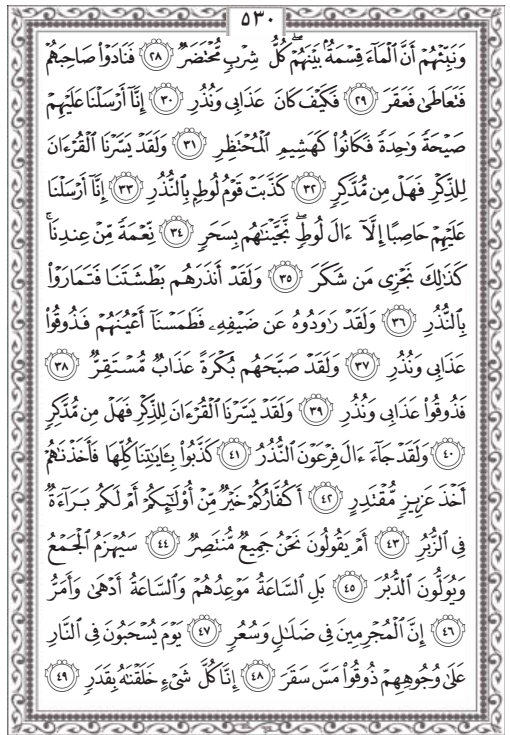 ٥٣٠
وَنَبِّئْهُمْ أَنَّ ٱلْمَآءَ قِسْمَةٌۢ بَيْنَهُمْ ۖ كُلُّ شِرْبٍ مُّحْتَضَرٌ ٢٨ فَنَادَوْا۟ صَاحِبَهُمْ
فَتَعَاطَىٰ فَعَقَرَ ٢٩ فَكَيْفَ كَانَ عَذَابِى وَنُذُرِ ٣٠ إِنَّآ أَرْسَلْنَا عَلَيْهِمْ
صَيْحَةً وَٰحِدَةً فَكَانُوا۟ كَهَشِيمِ ٱلْمُحْتَظِرِ ٣١ وَلَقَدْ يَسَّرْنَا ٱلْقُرْءَانَ
لِلذِّكْرِ فَهَلْ مِن مُّدَّكِرٍ ٣٢ كَذَّبَتْ قَوْمُ لُوطٍۭ بِٱلنُّذُرِ ٣٣ إِنَّآ أَرْسَلْنَا
عَلَيْهِمْ حَاصِبًا إِلَّآ ءَالَ لُوطٍ ۖ نَّجَّيْنَٰهُم بِسَحَرٍ ٣٤ نِّعْمَةً مِّنْ عِندِنَا ۚ
كَذَٰلِكَ نَجْزِى مَن شَكَرَ ٣٥ وَلَقَدْ أَنذَرَهُم بَطْشَتَنَا فَتَمَارَوْا۟
بِٱلنُّذُرِ ٣٦ وَلَقَدْ رَٰوَدُوهُ عَن ضَيْفِهِۦ فَطَمَسْنَآ أَعْيُنَهُمْ فَذُوقُوا۟
عَذَابِى وَنُذُرِ ٣٧ وَلَقَدْ صَبَّحَهُم بُكْرَةً عَذَابٌ مُّسْتَقِرٌّ ٣٨
فَذُوقُوا۟ عَذَابِى وَنُذُرِ ٣٩ وَلَقَدْ يَسَّرْنَا ٱلْقُرْءَانَ لِلذِّكْرِ فَهَلْ مِن مُّدَّكِرٍ
٤٠ وَلَقَدْ جَآءَ ءَالَ فِرْعَوْنَ ٱلنُّذُرُ ٤١ كَذَّبُوا۟ بِـَٔايَٰتِنَا كُلِّهَا فَأَخَذْنَٰهُمْ
أَخْذَ عَزِيزٍ مُّقْتَدِرٍ ٤٢ أَكُفَّارُكُمْ خَيْرٌ مِّنْ أُو۟لَٰٓئِكُمْ أَمْ لَكُم بَرَآءَةٌ
فِى ٱلزُّبُرِ ٤٣ أَمْ يَقُولُونَ نَحْنُ جَمِيعٌ مُّنتَصِرٌ ٤٤ سَيُهْزَمُ ٱلْجَمْعُ
وَيُوَلُّونَ ٱلدُّبُرَ ٤٥ بَلِ ٱلسَّاعَةُ مَوْعِدُهُمْ وَٱلسَّاعَةُ أَدْهَىٰ وَأَمَرُّ
٤٦ إِنَّ ٱلْمُجْرِمِينَ فِى ضَلَٰلٍ وَسُعُرٍ ٤٧ يَوْمَ يُسْحَبُونَ فِى ٱلنَّارِ
عَلَىٰ وُجُوهِهِمْ ذُوقُوا۟ مَسَّ سَقَرَ ٤٨ إِنَّا كُلَّ شَىْءٍ خَلَقْنَٰهُ بِقَدَرٍ ٤٩